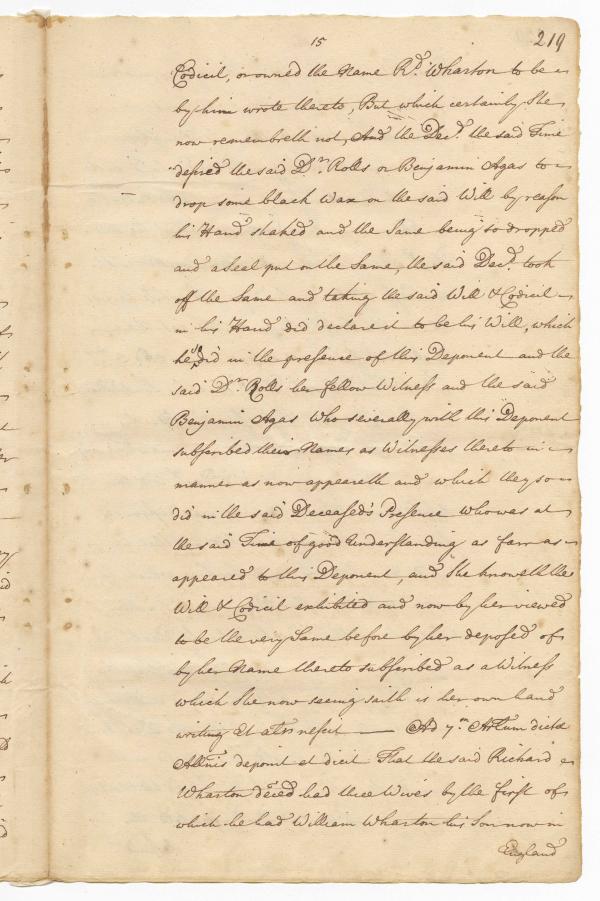 15
219
Codicil, or owned the Name Rd. Wharton to be
by him wrote thereto, But which certainly She
now remembreth not, And the Decd. the said Time
desired the said Dr. Rolls or Benjamin Agas to
drop some black Wax on the said Will by reason
his Hand shaked and the Same being so dropped
and a Seal put on the Same, the said Decd. took
off the Same and taking the said Will & Codicil
in his Hand did declare it to be his Will, which
he so did in the presence of this Deponent and the
said Dr. Rolls her fellow Witness and the said
Benjamin Agas who severally with this Deponent
subscribed their Names as Witnesses thereto in
manner as now appeareth and which they so
did in the said Deceased's Presence who was at
the said Time of good Understanding as farr as
appeared to this Deponent, and She knoweth the
Will & Codicil exhibited and now by her viewed
to be the very Same before by her deposed of
by her Name thereto subscribed as a Witness
which She now seeing saith is her own hand
writing Et alr nescit — Ad 7m. Artum dictæ
Allnis deponit et dicit That the said Richard
Wharton decēd had three Wives by the first of
which he had William Wharton his Son now in
England